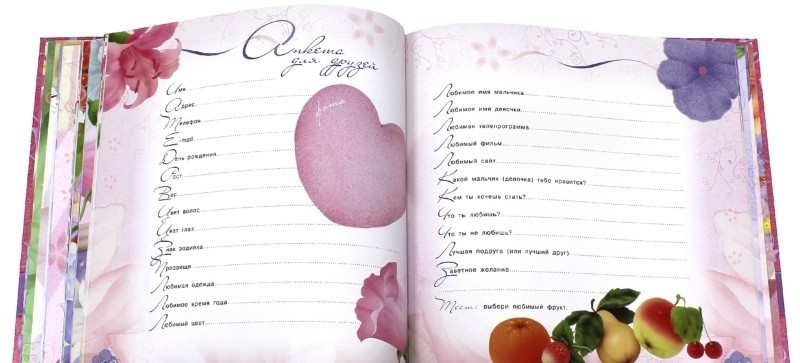 Анкета
для друзей
фото
Имя
Адрес
Телефон
E-mail
День рождения
Рост
Вес
Цвет волос
Цвет глаз
Знак зодиака
Прозвище
Любимая одежда
Любимое время года
Любимый цвет
Любимое имя мальчика
Любимое имя девочки
Любимая телепрограмма
Любимый фильм
Любимый сайт
Какой мальчик (девочка) тебе нравится?
Кем ты хочешь стать?
Что ты любишь?
Что ты не любишь?
Лучшая подруга (или лучший друг)
Заветное желание
Тест: выбери любимый фрукт.